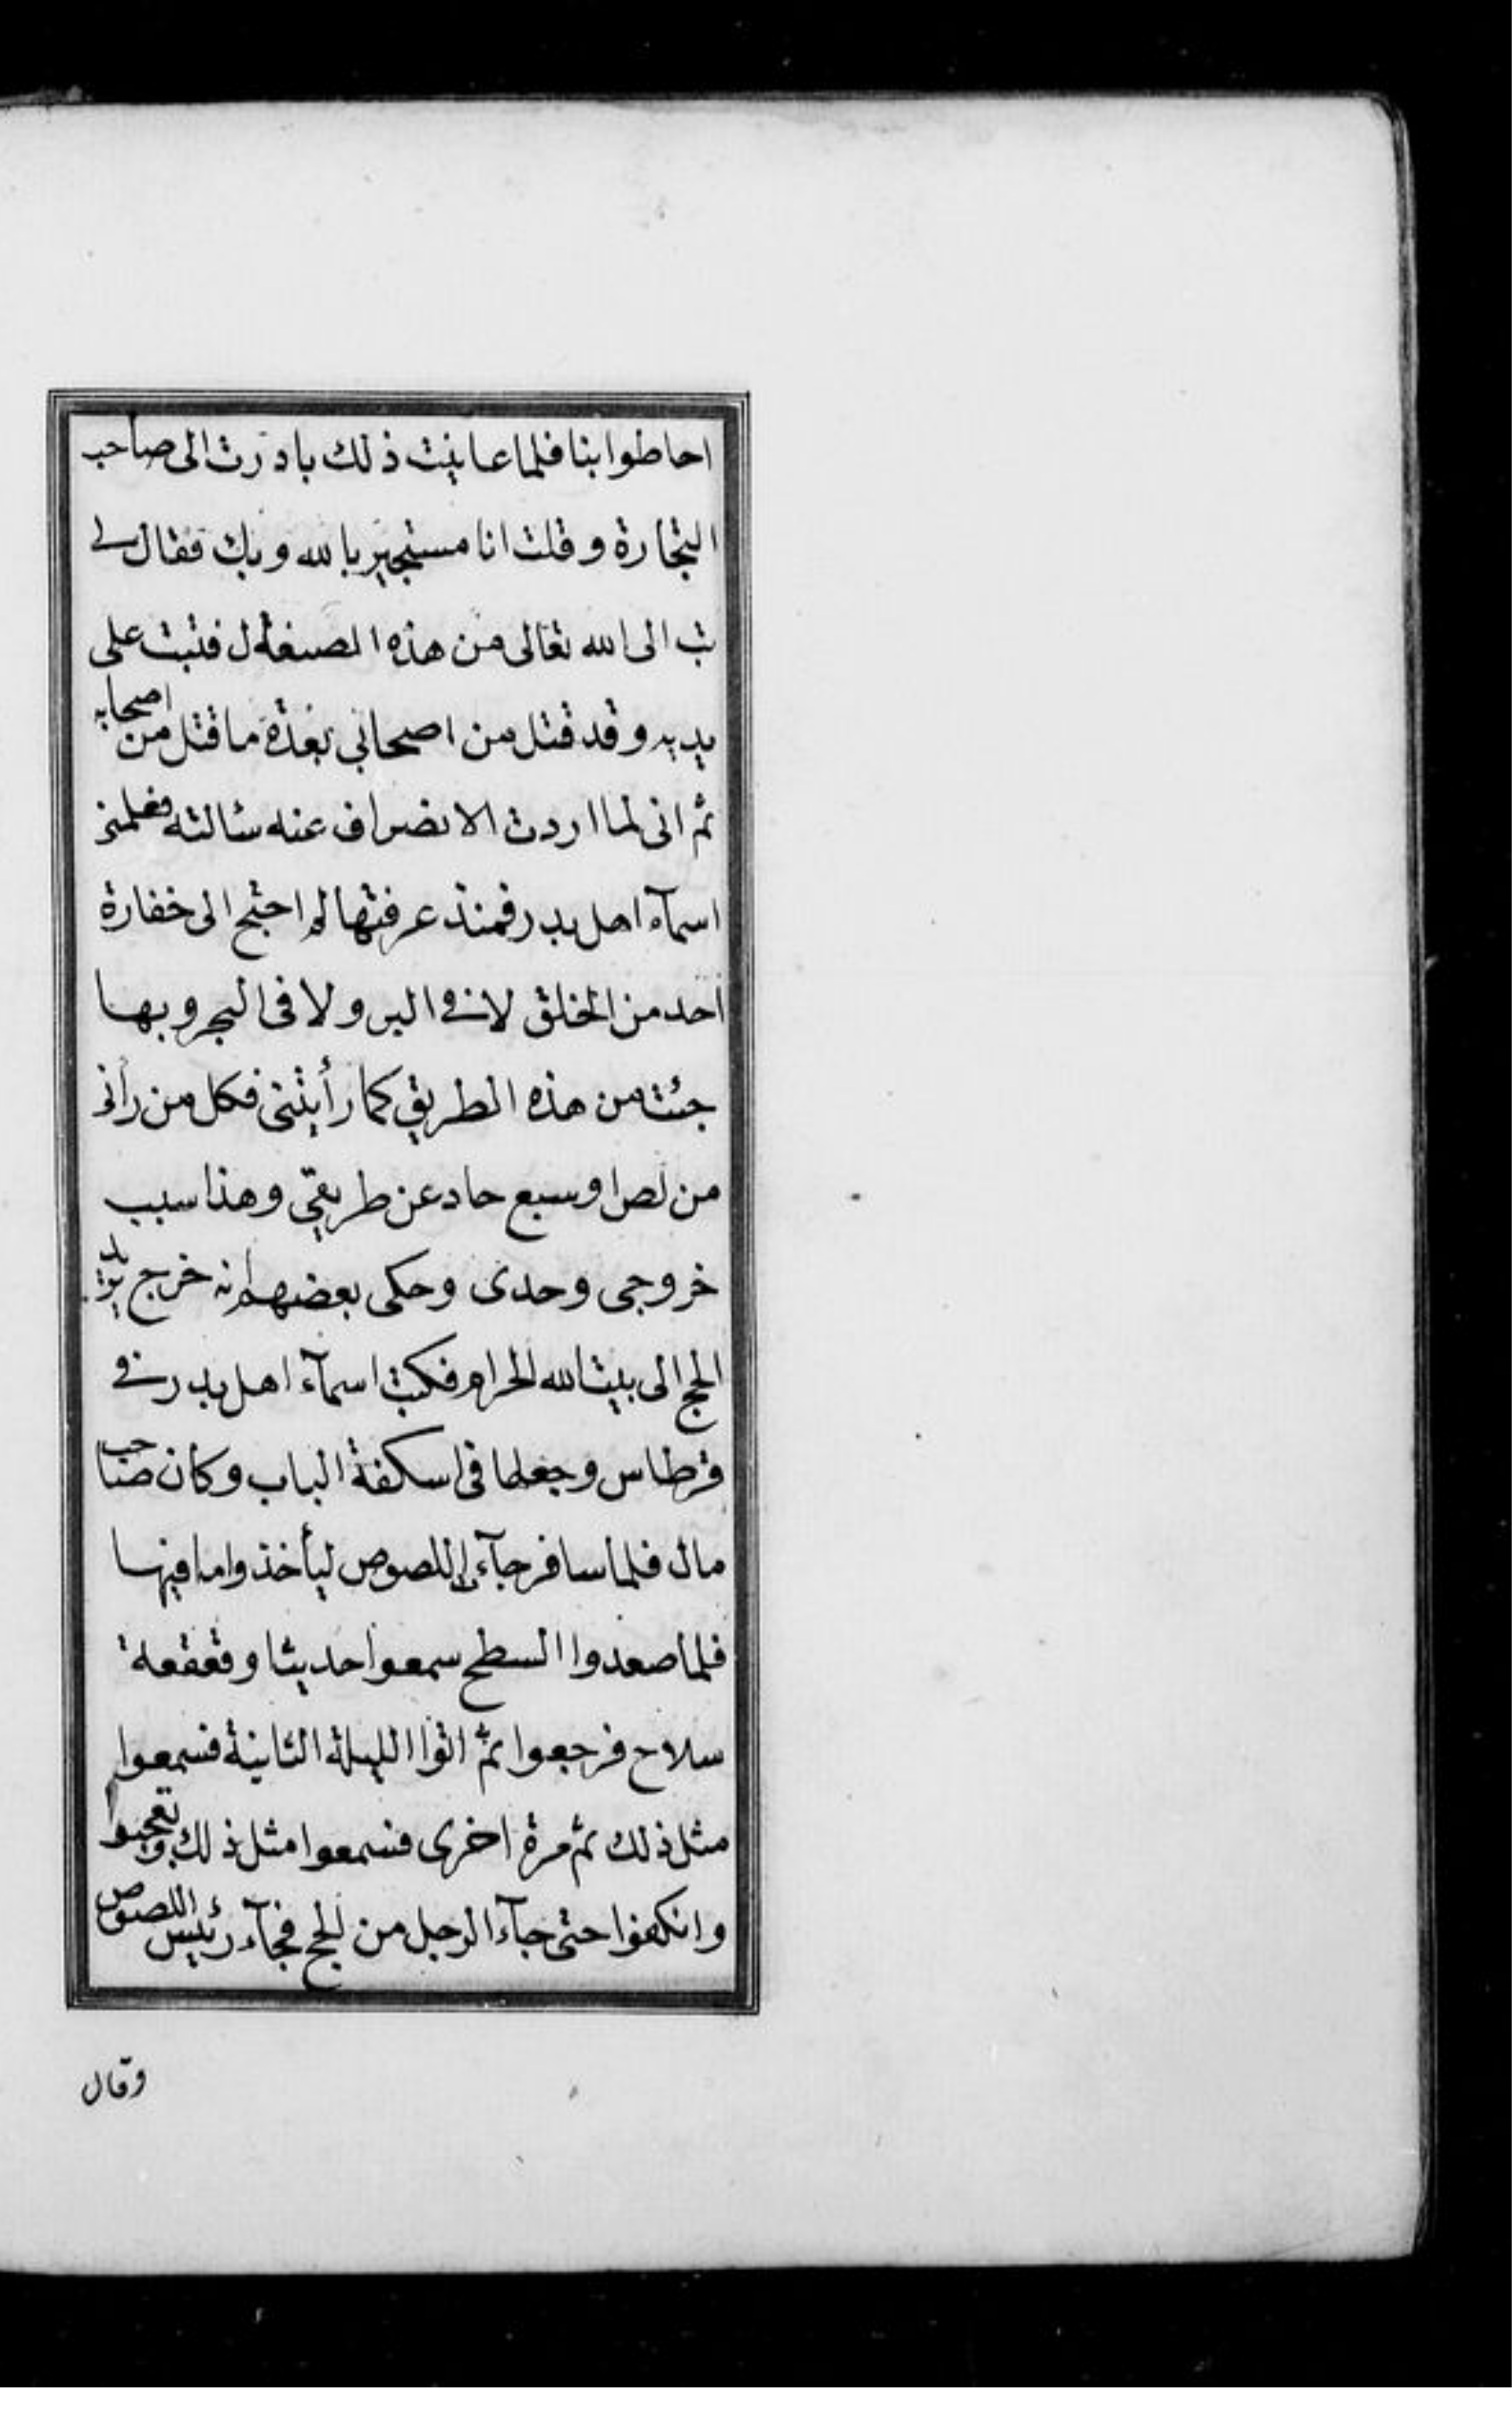 احاطوا بنا فلما عاينت ذلك بادرت الى صاحب
التجارة وقلت انا مستجير بالله وبك فقال لى
تب الى الله تعالى من هذه الصنعة فتبت على
يديه وقد قتل من اصحابى بعدة ما قتل من اصحابه
ثم انى لما اردت الانصراف عنه سئالته فعلمنى
اسمآء اهل بدر فمنذ عرفتها لم احتج الى خفارة
احد من الخلق لا فى البر ولا فى البحر وبها
جئت من هذه الطريق كما رأيتنى فكل من رأنى
من لص او سبع حاد عن طريقى وهذا سبب
خروجى وحدى وحكى بعضهم انه خرج يريد
الحج الى بيت الله الحرام فكتب اسمآء اهل بدر فى
قرطاس وجعلها فى اسكفة الباب وكان صاحب
مال فلما سافر جآء اللصوص ليأخذوا ما فيها
فلما صعدوا السطح سمعوا حديثا وقعقعة
سلاح فرجعوا ثم اتوا الليلة الثانية فسمعوا
مثل ذلك ثم مرة اخرى فسمعوا مثل ذلك وتعجبوا
وانكفوا حتى جآء الرجل من الحج فجآء رئيس اللصوص
وقال